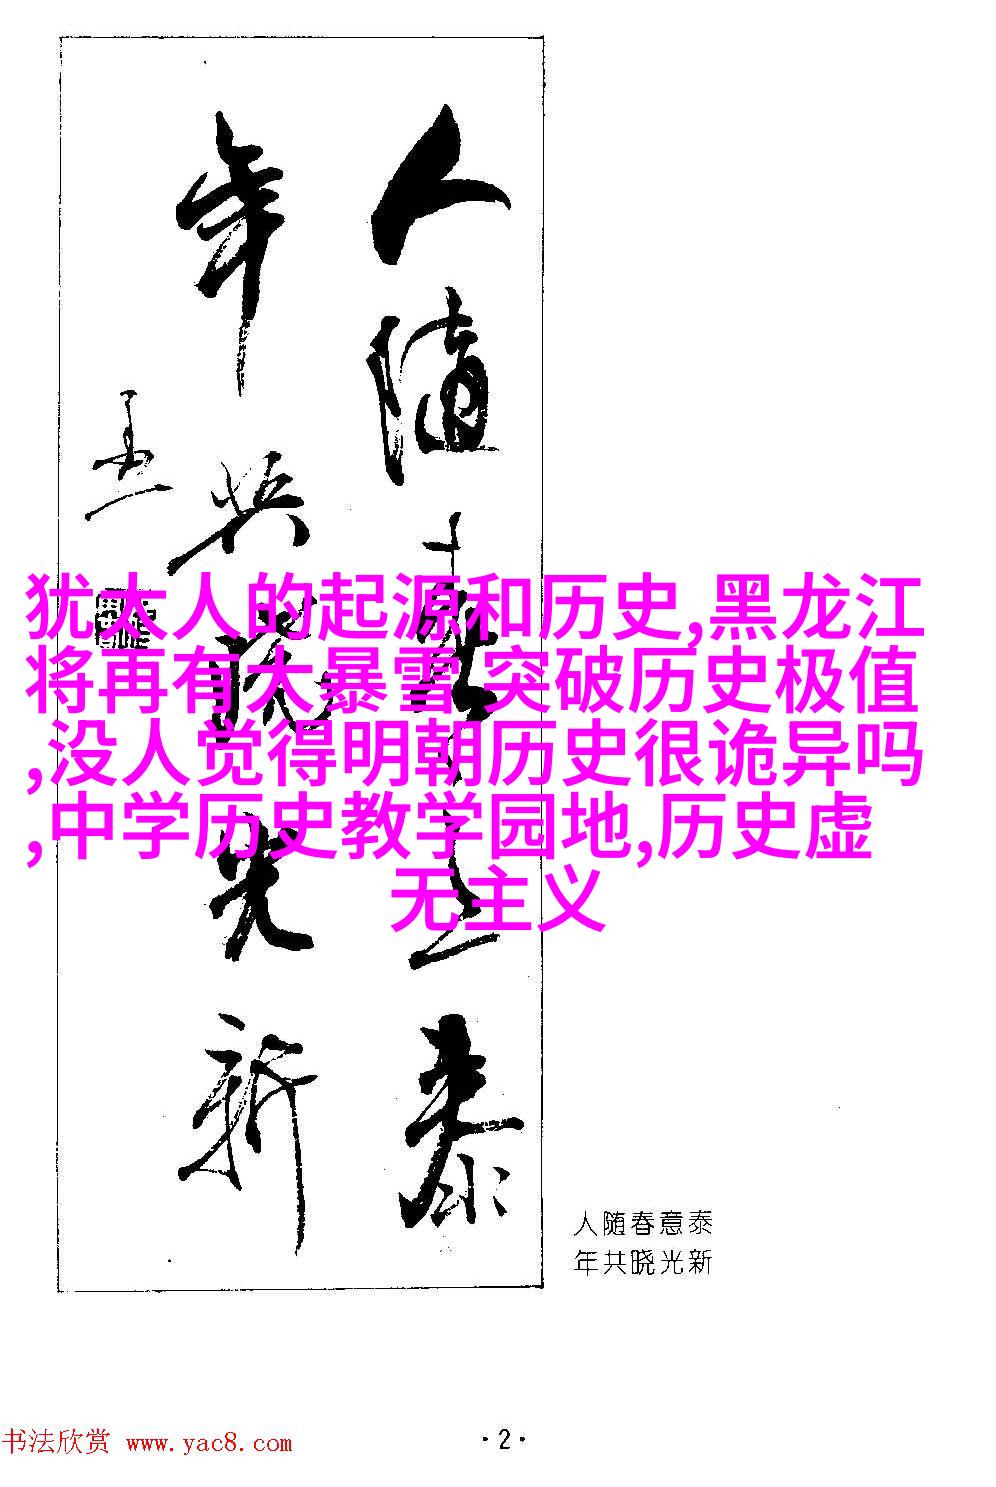 人随春意泰
年共晓光新
犹太人的起源和历史,黑龙江
将再有大暴雪 突破历史极值
,没人觉得明朝历史很诡异吗
,中学历史教学园地,历史虚
无主义
人随春意泰
年共晓光新
书法欣赏 www.yac8.com
·2·